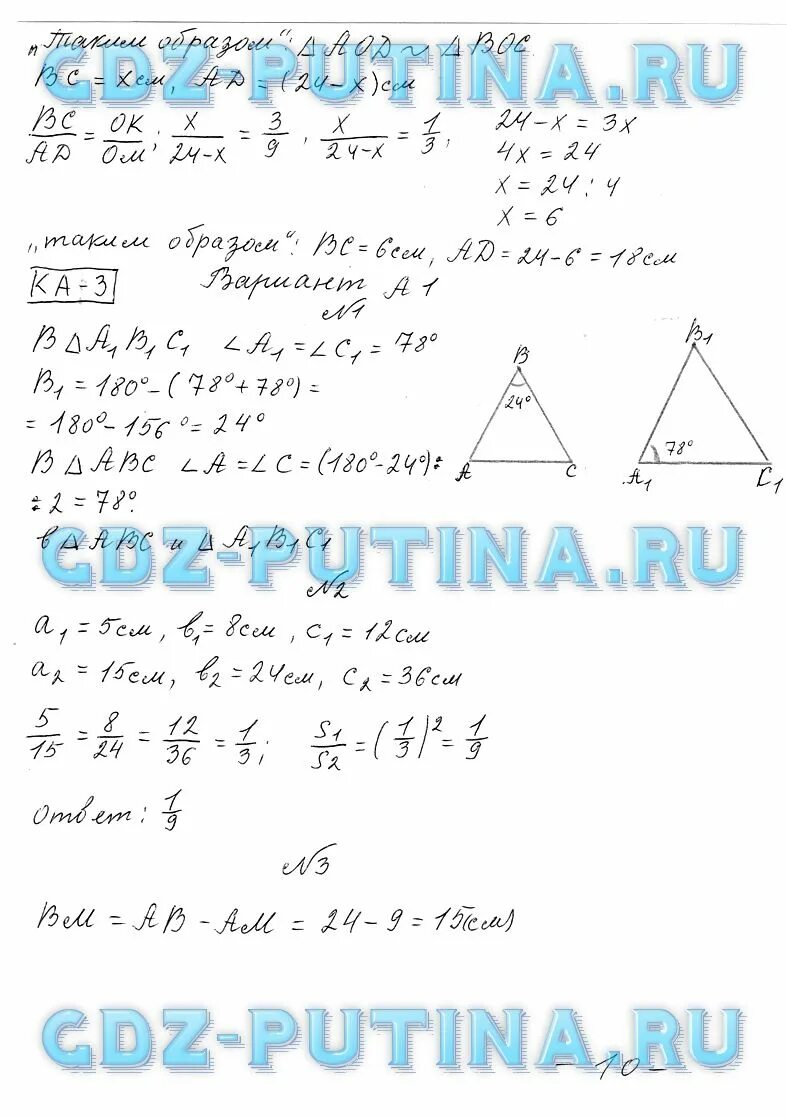 „Таким образом“: △AOD ~ △BOC
BC = x см, AD = (24-x) см
BC/AD = OK/OM; x/24-x = 3/9, x/24-x = 1/3;
24-x = 3x
4x = 24
x = 24 : 4
x = 6
„таким образом“: BC = 6 см, AD = 24-6 = 18 см
КА-3 Вариант А1
№1
В △A₁B₁C₁ ∠A₁ = ∠C₁ = 78°
B₁ = 180° - (78° + 78°) =
= 180° - 156° = 24°
В △ABC ∠A = ∠C = (180° - 24°) ÷
÷ 2 = 78°.
в △ABC и △A₁B₁C₁
B
24°
A
C
B₁
78°
A₁
C₁
№2
a₁ = 5 см, b₁ = 8 см, c₁ = 12 см
a₂ = 15 см, b₂ = 24 см, c₂ = 36 см
5/15 = 8/24 = 12/36 = 1/3; S₁/S₂ = (1/3)² = 1/9
Ответ: 1/9
№3
BM = AB - AM = 24 - 9 = 15(см)
- 10 -
GDZ-PUTINA.RU
GDZ-PUTINA.RU
GDZ-PUTINA.RU